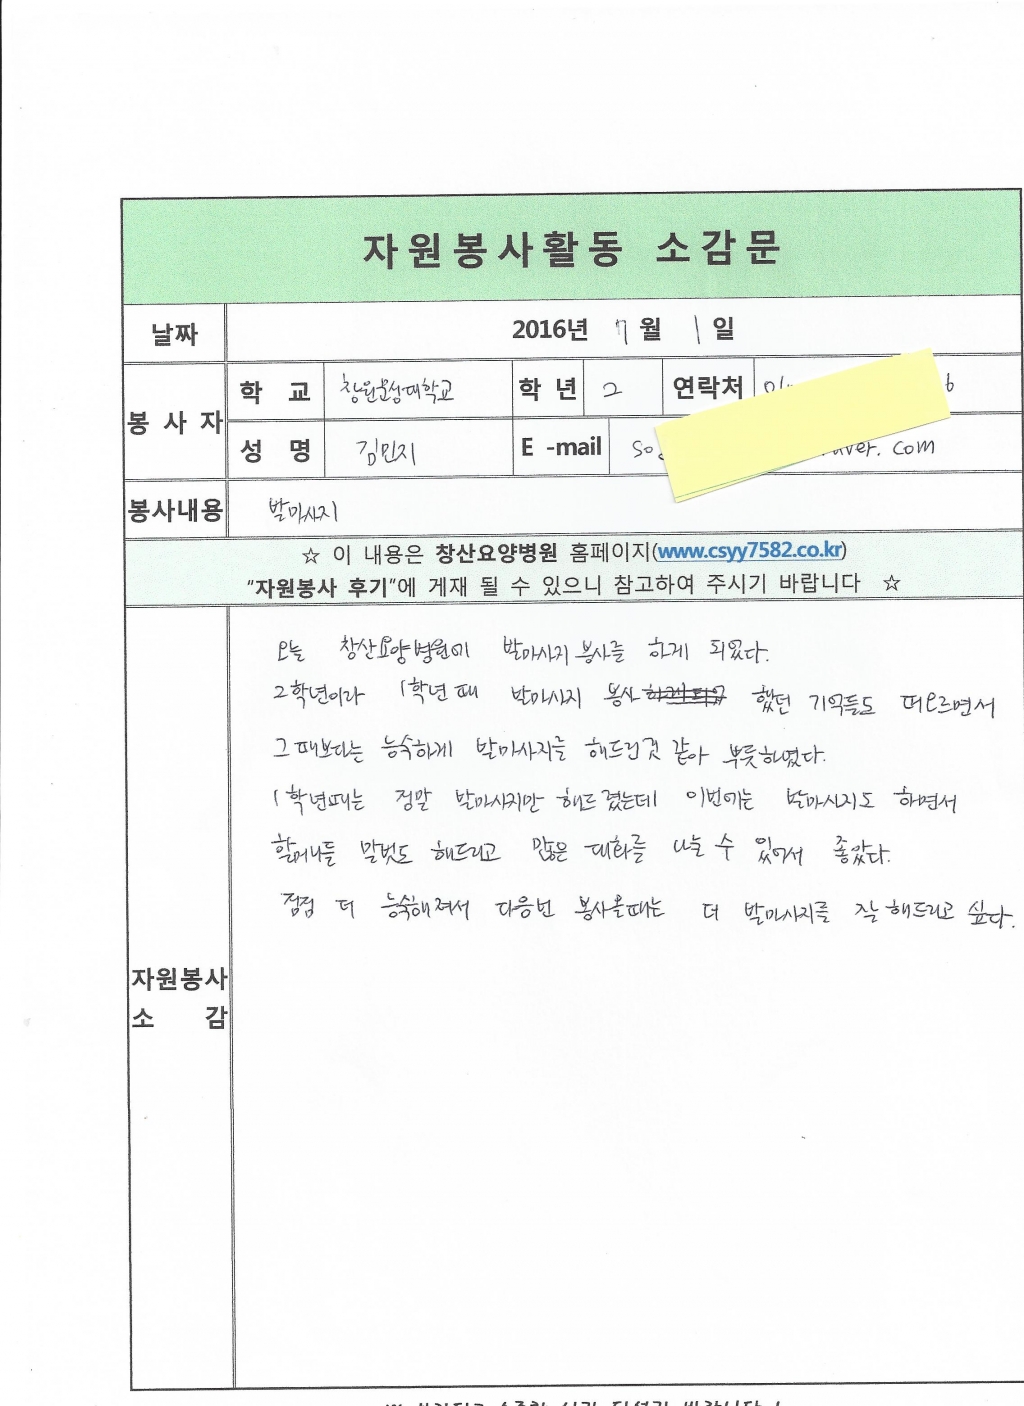 자원봉사활동 소감문
날짜 2016년 7월 1일
봉사자 학 교 창원문성대학교 학 년 2 연락처
성 명 김민지 E -mail .com
봉사내용 발마사지
☆ 이 내용은 창산요양병원 홈페이지(www.csyy7582.co.kr)
"자원봉사 후기"에 게재 될 수 있으니 참고하여 주시기 바랍니다 ☆
오늘 창산요양병원에 발마사지 봉사를 하게 되었다.
2학년이라 1학년때 발마사지 봉사 했던 기억들도 떠오르면서
그때보다는 능숙하게 발마사지를 해드린것 같아 부듯하였다.
1학년때는 정말 발마사지만 해드렸는데 이번에는 발마사지도 하면서
할머니들 말벗도 해드리고 많은 대화를 나눌 수 있어서 좋았다.
점점 더 능숙해져서 다음번 봉사올때는 더 발마사지를 잘 해드리고 싶다.
자원봉사
소 감